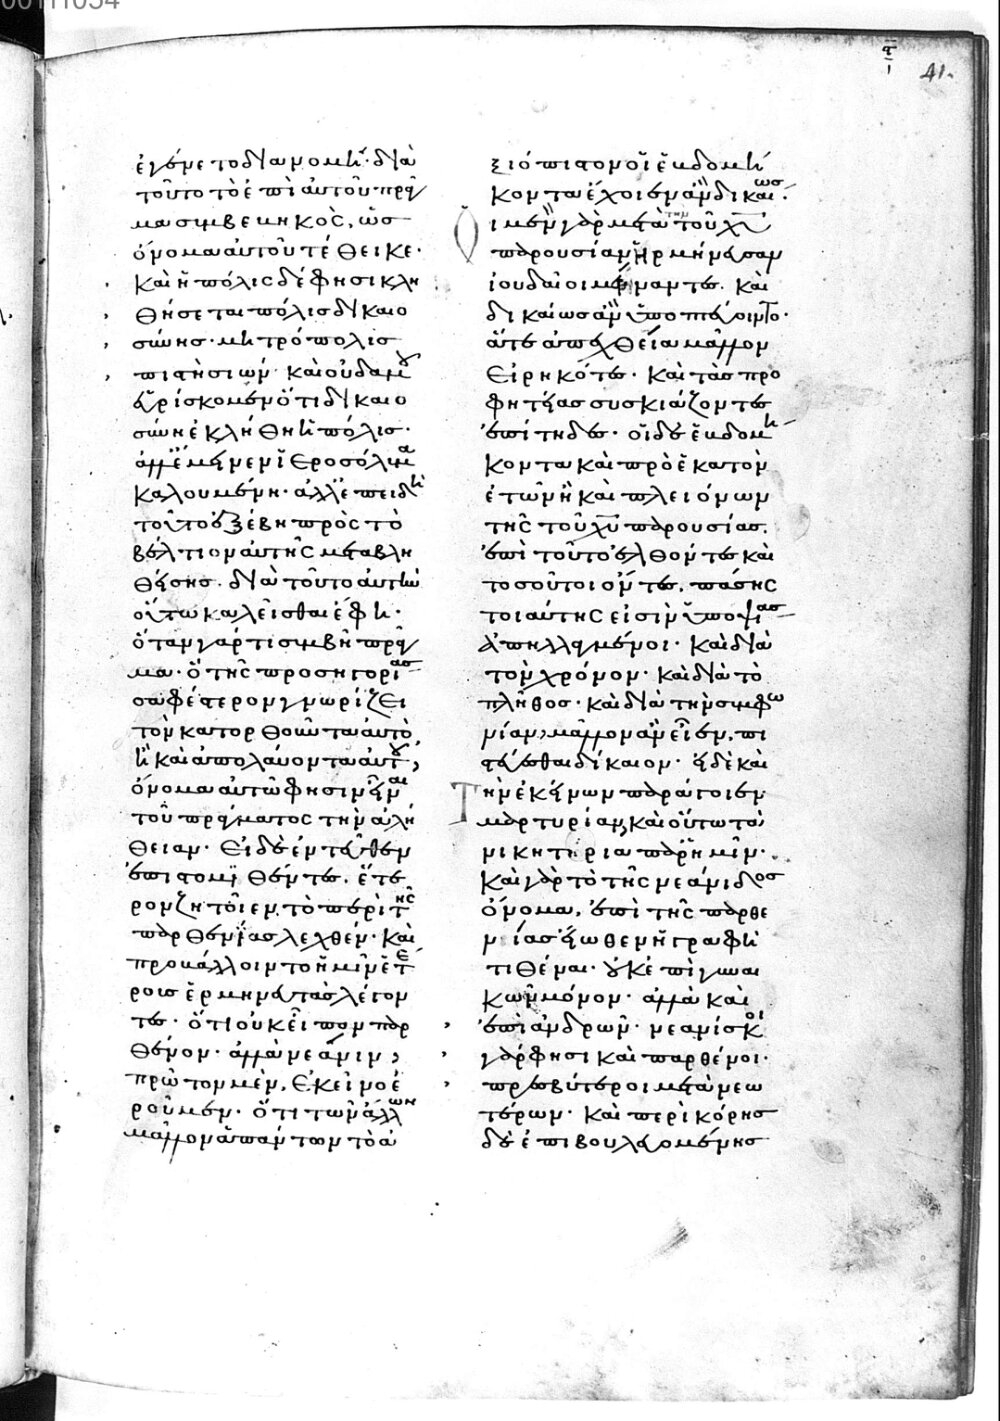 ἐγένετο διανομή· διὰ
τοῦτο τὸ ἐπὶ αὐτοῦ πρᾶγ
μα συμβεβηκὸς, ὡς
ὄνομα αὐτοῦ τέθεικε·
καὶ ἡ πόλις δέ φησι κλη
θήσεται πόλις δικαιο
σύνης· μητρόπολις
πιστὴ σιών· καὶ οὐδαμοῦ
εὑρίσκομεν ὅτι δικαιο
σύνη ἐκλήθη ἡ πόλις·
ἀλλ' ἔμεινεν ἱεροσόλυμα
καλουμένη· ἀλλ' ἐπειδὴ
τοῦτο ἐξέβη πρὸς τὸ
βέλτιον αὐτῆς μεταβλη
θείσης· διὰ τοῦτο αὐτὴν
οὕτω καλεῖσθαι ἔφη·
ὅταν γάρ τι συμβῆ πρᾶγ
μα· ὃ τῆς προσηγορίας
σαφέστερον γνωρίζει
τὸν κατορθοῦντα αὐτὸ,
ἢ καὶ ἀπολαύοντα αὐτοῦ,
ὄνομα αὐτῶ φησιν εἶναι
τοῦ πράγματος τὴν ἀλή
θειαν· εἰ δὲ ἐντεῦθεν
ἐπιστομισθέντες, ἕτε
ρον ζητοῖεν, τὸ περὶ τῆς
παρθενίας λεχθέν· καὶ
προβάλλοιντο ἡμῖν ἑτέ
ρους ἑρμηνευτὰς λέγον
τες· ὅτι οὐκ εἶπον παρ
θένον· ἀλλὰ νεᾶνιν,
πρῶτον μὲν, ἐκεῖνο ἐ
ροῦμεν· ὅτι τῶν ἄλλων
μᾶλλον ἁπάντων τὸ ἀ
ξιόπιστον οἱ ἑβδομή
κοντα ἔχοιεν ἂν δικαίως·
οἱ μὲν γὰρ μετὰ τὴν τοῦ χυ
παρουσίαν ἡρμήνευσαν
ἰουδαῖοι μείναντες· καὶ
δικαίως ἂν ὑποπτεύοιντο·
ἅτε ἀπεχθεία μᾶλλον
εἰρηκότες· καὶ τὰς προ
φητείας συσκιάζοντες
ἐπίτηδες· οἱ δὲ ἑβδομή
κοντα καὶ πρὸ ἑκατὸν
ἐτῶν ἢ καὶ πλειόνων
τῆς τοῦ χυ παρουσίας,
ἐπὶ τοῦτο ἐλθόντες καὶ
τοσοῦτοι ὄντες, πάσης
τοιαύτης εἰσὶν ὑποψίας
ἀπηλλαγμένοι· καὶ διὰ
τὸν χρόνον· καὶ διὰ τὸ
πλῆθος· καὶ διὰ τὴν συμφω
νίαν, μᾶλλον ἂν εἶεν, πι
στεύεσθαι δίκαιοι· εἰ δὲ καὶ
τὴν ἐκείνων παράγοιεν
μαρτυρίαν, καὶ οὕτω τὰ
νικητήρια παρ' ἡμῖν·
καὶ γὰρ τὸ τῆς νεάνιδος
ὄνομα, ἐπὶ τῆς παρθε
νίας εἴωθεν ἡ γραφὴ
τιθέναι· οὐκ ἐπὶ γυναι
κῶν μόνον· ἀλλὰ καὶ
ἐπὶ ἀνδρῶν· νεανίσκοι
γάρ φησι καὶ παρθένοι·
πρεσβύτεροι μετὰ νεω
τέρων· καὶ περὶ κόρης
δὲ ἐπιβουλευομένης